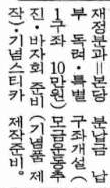 재정분과=본당 분납금 납
부 독려·특별 구좌개설(
1구좌 10만원) 모금운동추
진·바자회 준비(기념품 제
작)·기념스티카 제작준비。